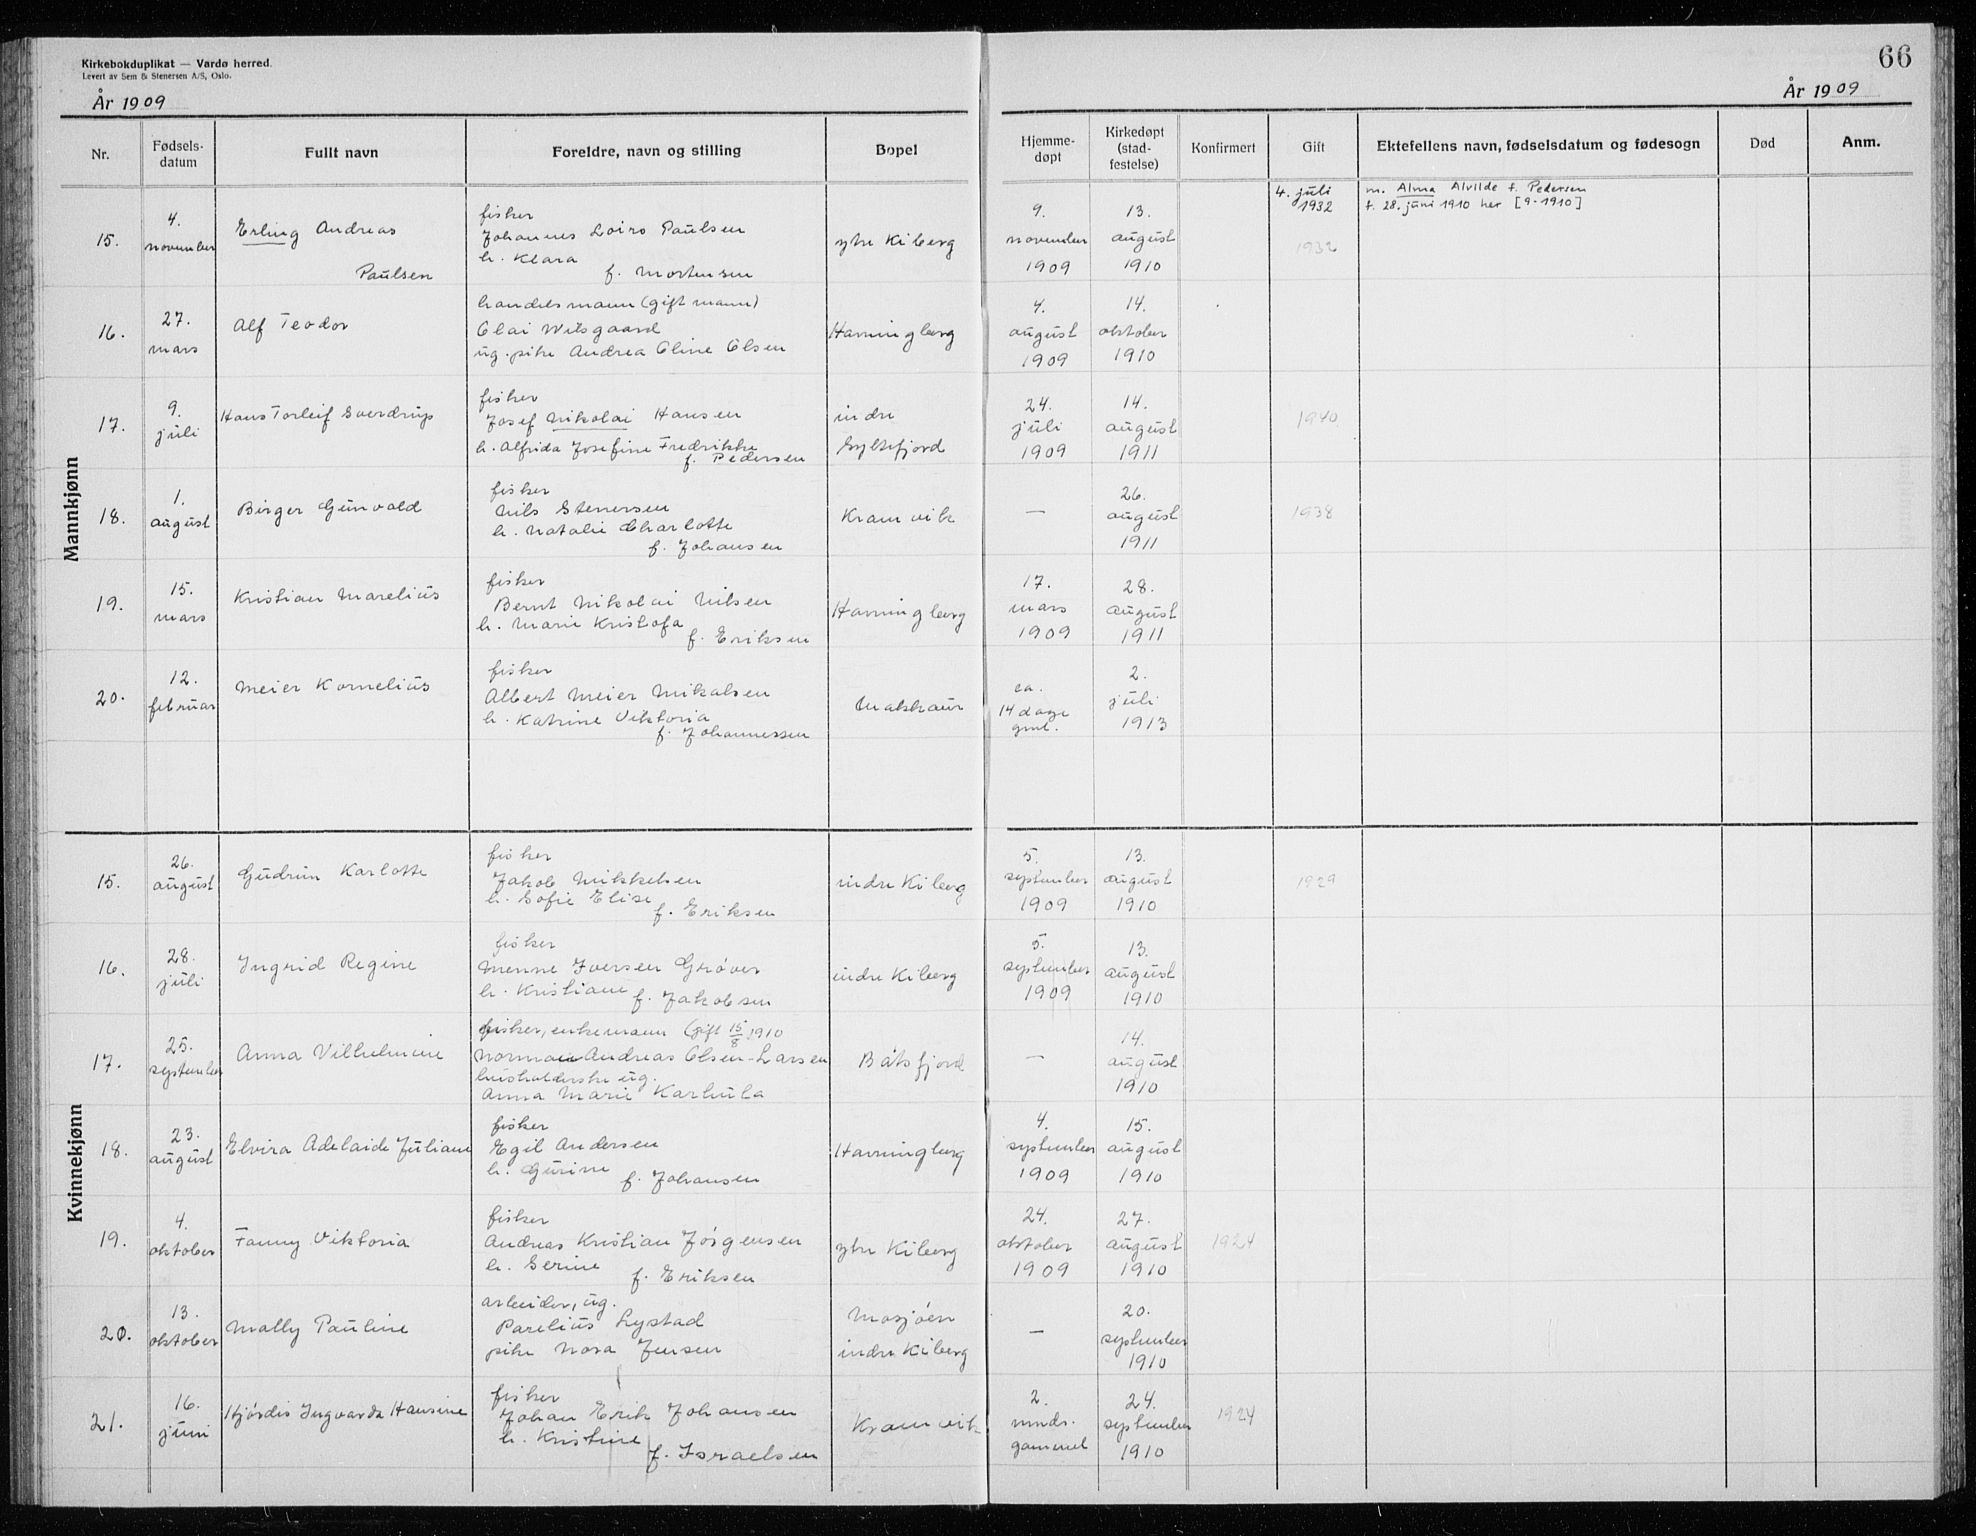 66
Kirkebokduplikat — Vardø herred.
Levert av Sem & Stenersen A/S, Oslo.
År 1909
År 1909
Nr. Fødsels-datum Fullt navn Foreldre, navn og stilling Bopel Hjemme-døpt Kirkedøpt (stad-festelse) Konfirmert Gift Ektefellens navn, fødselsdatum og fødesogn Død Anm.
Mannkjønn
15. 4. november Erling Andreas Paulsen
fisker
Johannes Loiro Paulsen
h. Klara
f. Mortensen
ytre Kiberg
9. november 1909
13. august 1910
4. juli 1932
1932
m. Alma Alvilde f. Pedersen
f. 28. juni 1910 her [9-1910]
16. 27. mars Alf Teodor
handelsmann (gift mann)
Olai Witsgaard
ug. pike Andrea Oline Olsen
Havningberg
4. august 1909
14. oktober 1910
17. 9. juli Hans Torleif Sverdrup
fisker
Josef Nikolai Hansen
h. Alfrida Josefine Fredrikke
f. Pedersen
indre Syltefjord
24. juli 1909
14. august 1911
1940
18. 1. august Birger Gunvald
fisker
Nils Stenersen
h. Natalie Charlotte
f. Johansen
Kramvik
—
26. august 1911
1938
19. 15. mars Kristian Marelius
fisker
Bernt Nikolai Nilsen
h. Marie Kristofa
f. Eriksen
Havningberg
17. mars 1909
28. august 1911
20. 12. februar Meier Kornelius
fisker
Albert Meier Mikalsen
h. Katrine Viktoria
f. Johannessen
Makkaur
ca. 14 dage gml.
2. juli 1913
Kvinnekjønn
15. 26. august Gudrun Karlotte
fisker
Jakob Mikkelsen
h. Sofie Elise
f. Eriksen
indre Kiberg
5. september 1909
13. august 1910
1929
16. 28. juli Ingrid Regine
fisker
Menne Iversen Grøver
h. Kristiane f. Jakobsen
indre Kiberg
5. september 1909
13. august 1910
17. 25. september Anna Vilhelmine
fisker, enkemann (gift 15/8 1910
Norman Andreas Olsen-Larsen
husholderske ug.
Anna Marie Karhula
Båtsfjord
—
14. august 1910
18. 23. august Elvira Adelaide Juliane
fisker
Egil Andersen
h. Gurine
f. Johansen
Havningberg
4. september 1909
15. august 1910
19. 4. oktober Fanny Viktoria
fisker
Andreas Kristian Jørgensen
h. Serine
f. Eriksen
ytre Kiberg
24. oktober 1909
27. august 1910
1924
20. 13. oktober Mally Pauline
arbeider, ug.
Parelius Lystad
pike Nora Jensen
Mosjøen
indre Kiberg
—
20. september 1910
21. 16. juni Hjørdis Ingvarda Hansine
fisker
Johan Erik Johansen
h. Kristine
f. Israelsen
Kramvik
2. mnds. gammel
24. september 1910
1924